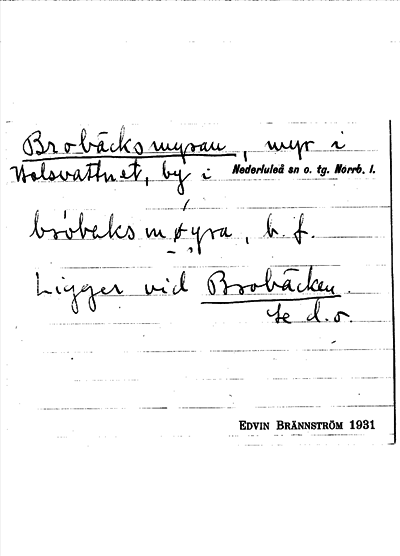 Brobäcksmyran, myr i
Holsvattnet, by i Nederluleå sn o. tg. Norrb. l.
bróbaks møyra, b. f.
Ligger vid Brobäcken.
se d. o.
EDVIN BRÄNNSTRÖM 1931